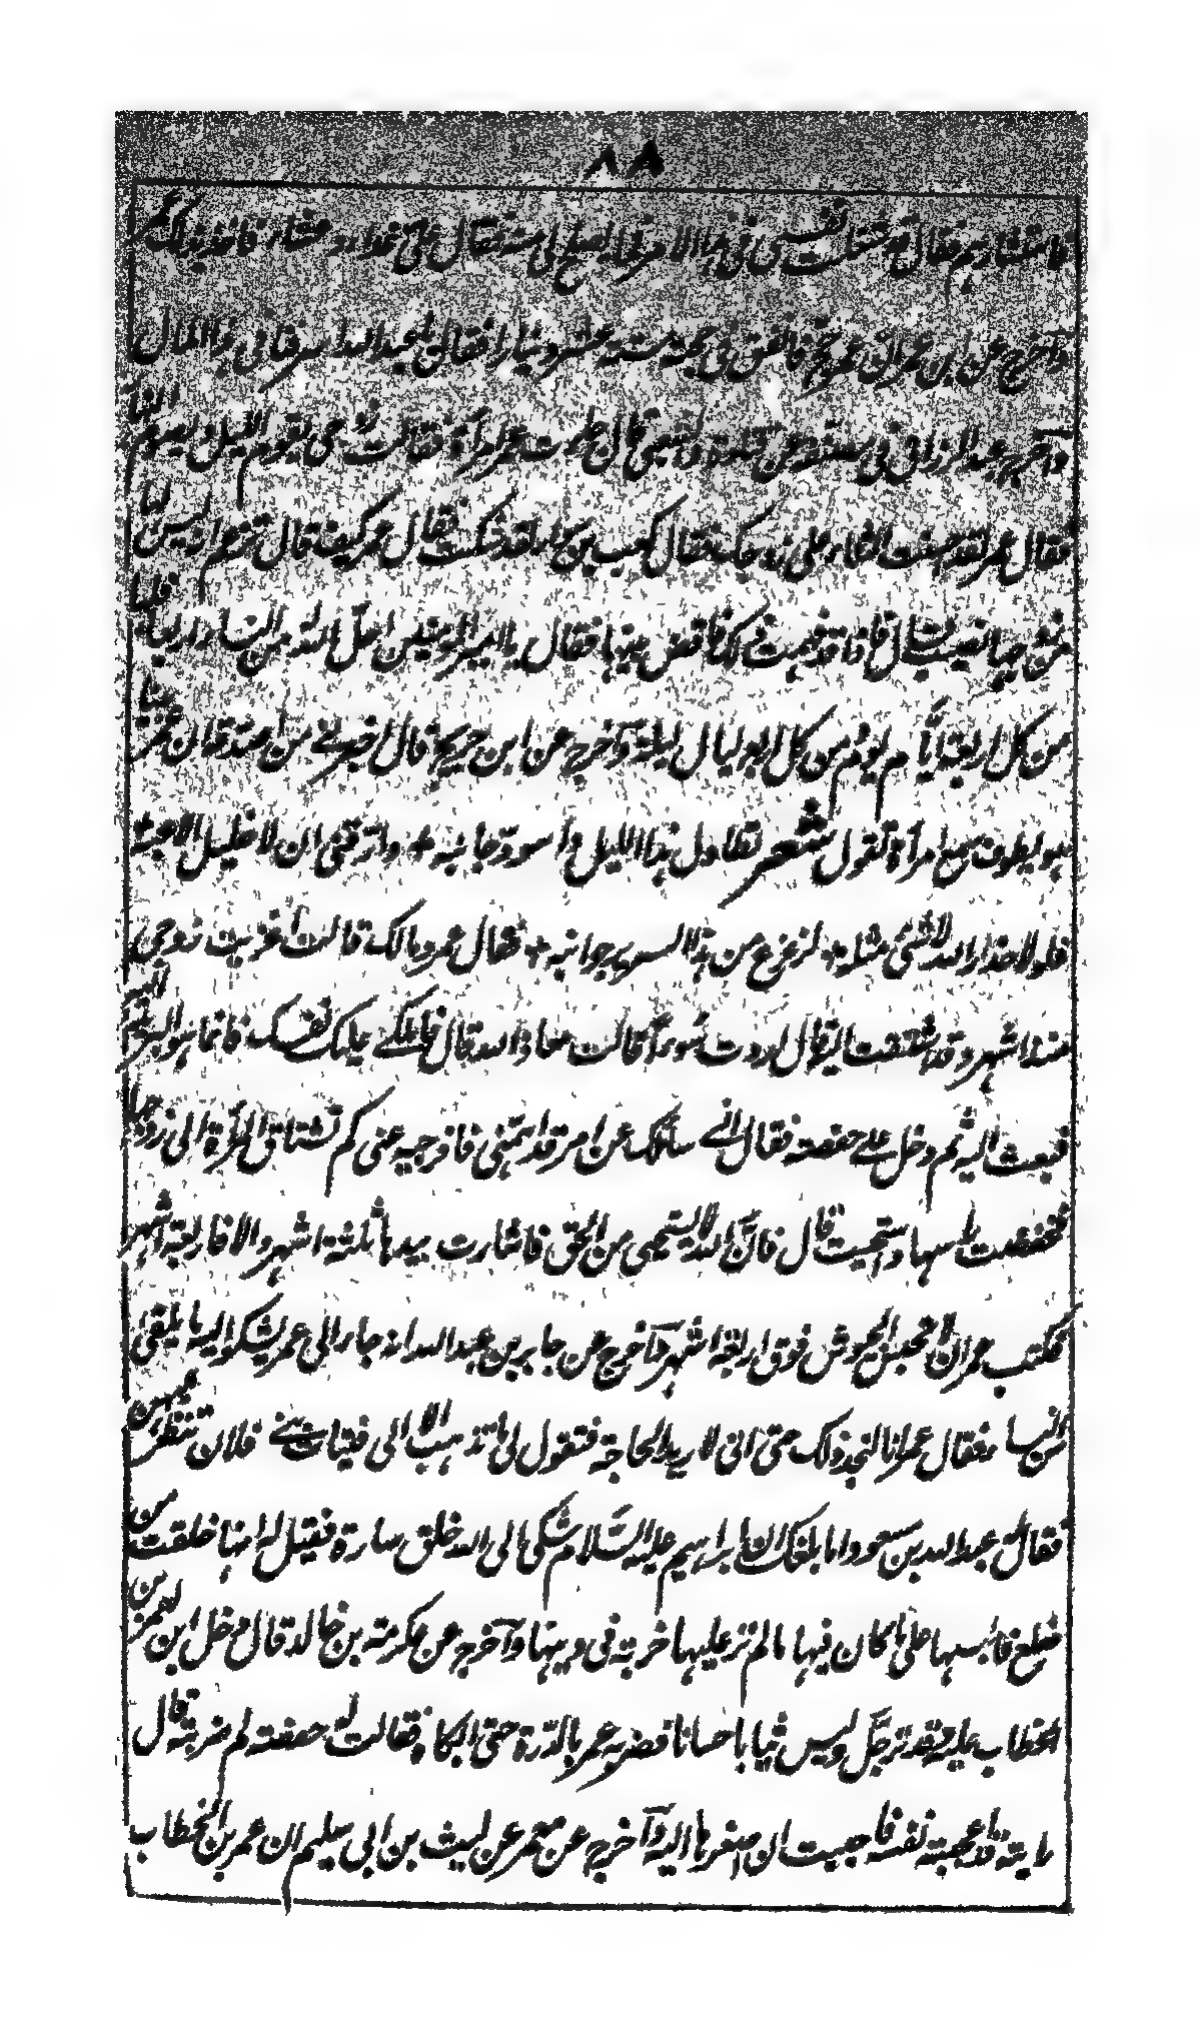 ٨٨
فاستشارهم فقال قد شغلت نفسي في هذا الامر فما يصلح لي منه فقال علي غداء وعشاء فاخذ بذلك عمر
وآخرج عن ابن عمر ان عمر حج فانفق في حجته ستة عشر دينارا فقال يا عبد الله اسرفنا في هذا المال
وآخرج عبد الرزاق في مصنفه عن قتادة والشعبي قال جاءت عمر امرأة فقالت زوجي يقوم الليل ويصوم النهار
فقال عمر لقد احسنت الثناء على زوجك فقال كعب بن سور لقد شكت فقال عمر كيف قال تزعم انه ليس لها
من زوجها نصيب قال فاذا قد فهمت ذلك فاقض بينهما فقال يا امير المؤمنين احل الله له من النساء اربعا فلها
من كل اربعة ايّام يوم ومن كل اربع ليال ليلة وآخرج عن ابن جريج قال اخبرني من اصدقه ان عمر بينا
هو يطوف سمع امرأة تقول شعر تطاول هذا الليل واسود جانبه + وارقني ان لا خليل الاعبه
فلولا حذار الله لا شئ مثله + لزعزع من هذا السرير جوانبه + فقال عمر ومالك قالت اغزيت زوجي
منذ اشهر وقد اشتقت اليه قال اردت سوءًا قالت معاذ الله قال فاملكي عليك نفسك فانما هو البريد اليه
فبعث اليه ثم دخل على حفصة فقال اني سائلك عن امر قد اهمّني فافرجيه عني كم تشتاق المرأة الى زوجها
فخفضت رأسها واستحيت قال فان الله لا يستحيي من الحق فاشارت بيدها ثلثة اشهر والا فاربعة اشهر
فكتب عمر ان لا تحبس الجيوش فوق اربعة اشهر وآخرج عن جابر بن عبد الله انه جاء الى عمر يشكو اليه ما يلقى
من النساء فقال عمر انا لنجد ذلك حتى اني لاريد الحاجة فتقول لي ما تذهب الا الى فتيات بني فلان تنظر اليهن
فقال له عبد الله بن مسعود اما بلغك ان ابراهيم عليه السّلام شكى الى الله خلق سارة فقيل له انها خلقت من
ضلع فالبسها على ما كان فيها ما لم تر عليها خربة في دينها وآخرج عن عكرمة بن خالد قال دخل ابن لعمر بن
الخطاب عليه وقد ترجّل ولبس ثيابا حسانا فضربه عمر بالدّرة حتى ابكاه فقالت له حفصة لم ضربته قال
رايته قد اعجبته نفسه فاحببت ان اصغرها اليه وآخرج عن معمر عن ليث بن ابي سليم ان عمر بن الخطاب